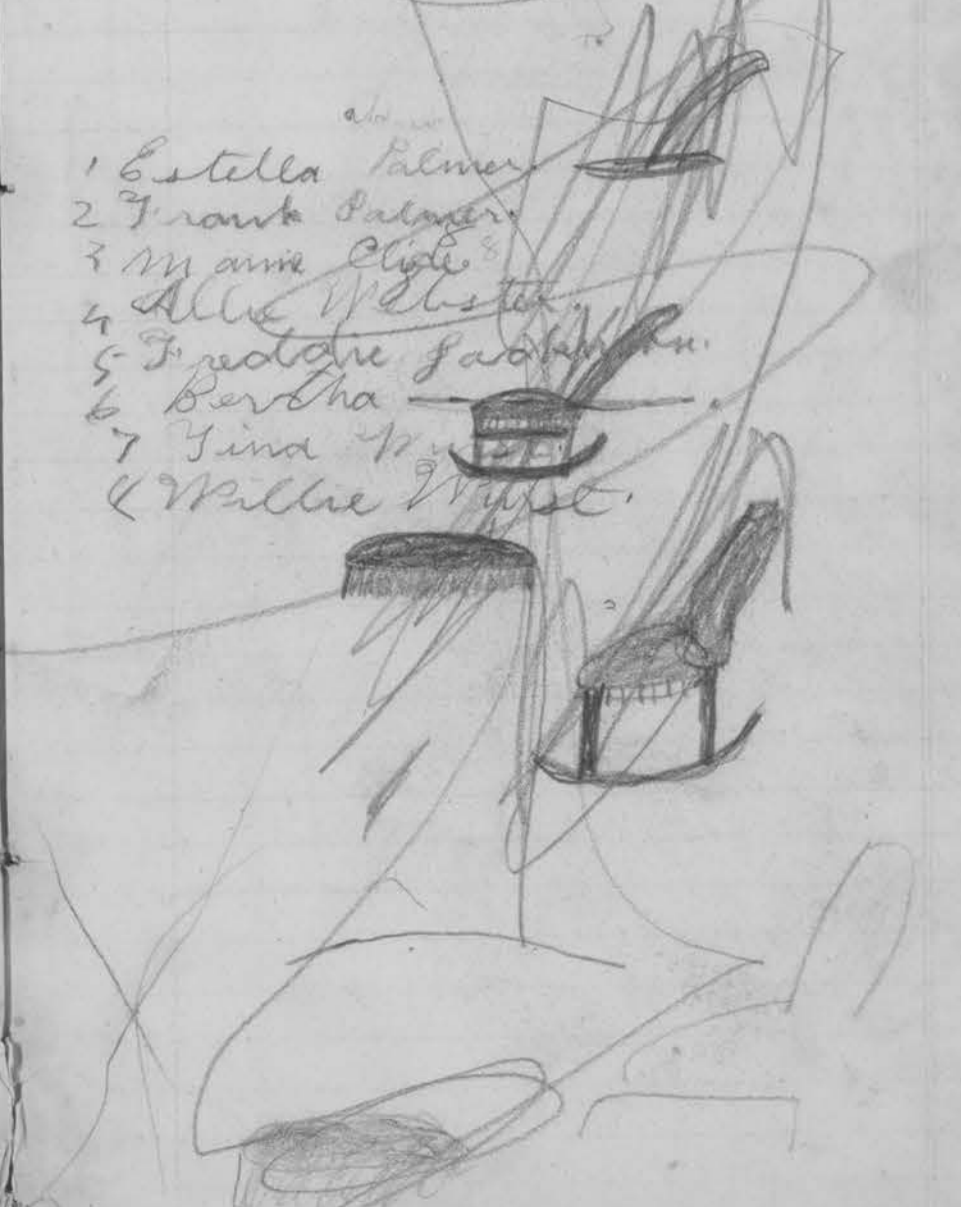 1 Estella Palmer.
2 Frank Palmer.
3 Mamie Clyde
4 Allie Webster.
5 Freddie
6 Bertha
7 Tina
8 Willie Wurst.